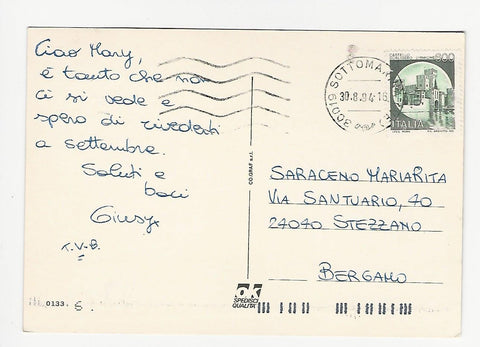 Ciao Mary,
è tanto che non
ci si vede e
spero di rivederti
a settembre.
Saluti e
baci
Giusy
T.V.B.
0133. S.
CO.GRAF s.r.l.
OK
SPEDISCI
QUALITA'
30019 SOTTOMAR
30.8.94-16
CASTELLO
600
ITALIA
SARACENO MARIARITA
VIA SANTUARIO, 40
24040 STEZZANO
BERGAMO